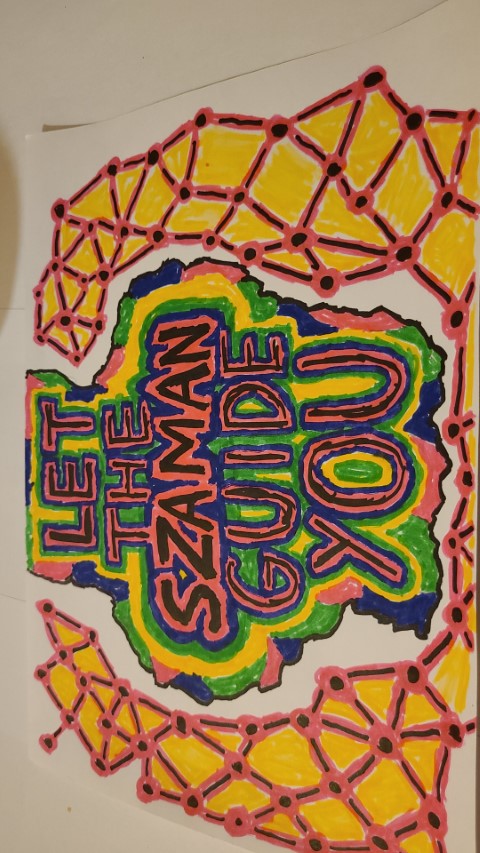 LET
THE
SZAMAN
GUIDE
YOU